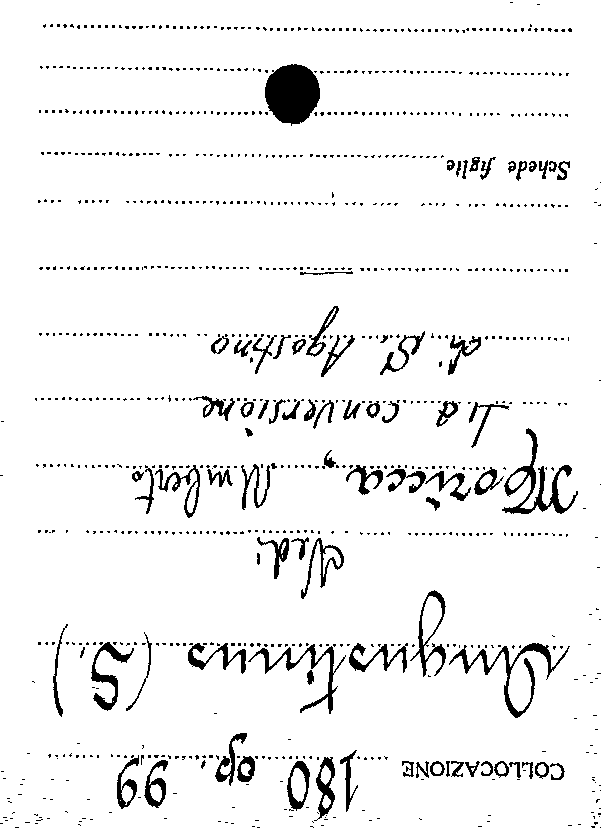 COLLOCAZIONE 180 op. 99
Augustinus (S.)
Vedi
Moricca, Umberto
La conversione
di S. Agostino
Schede figlie